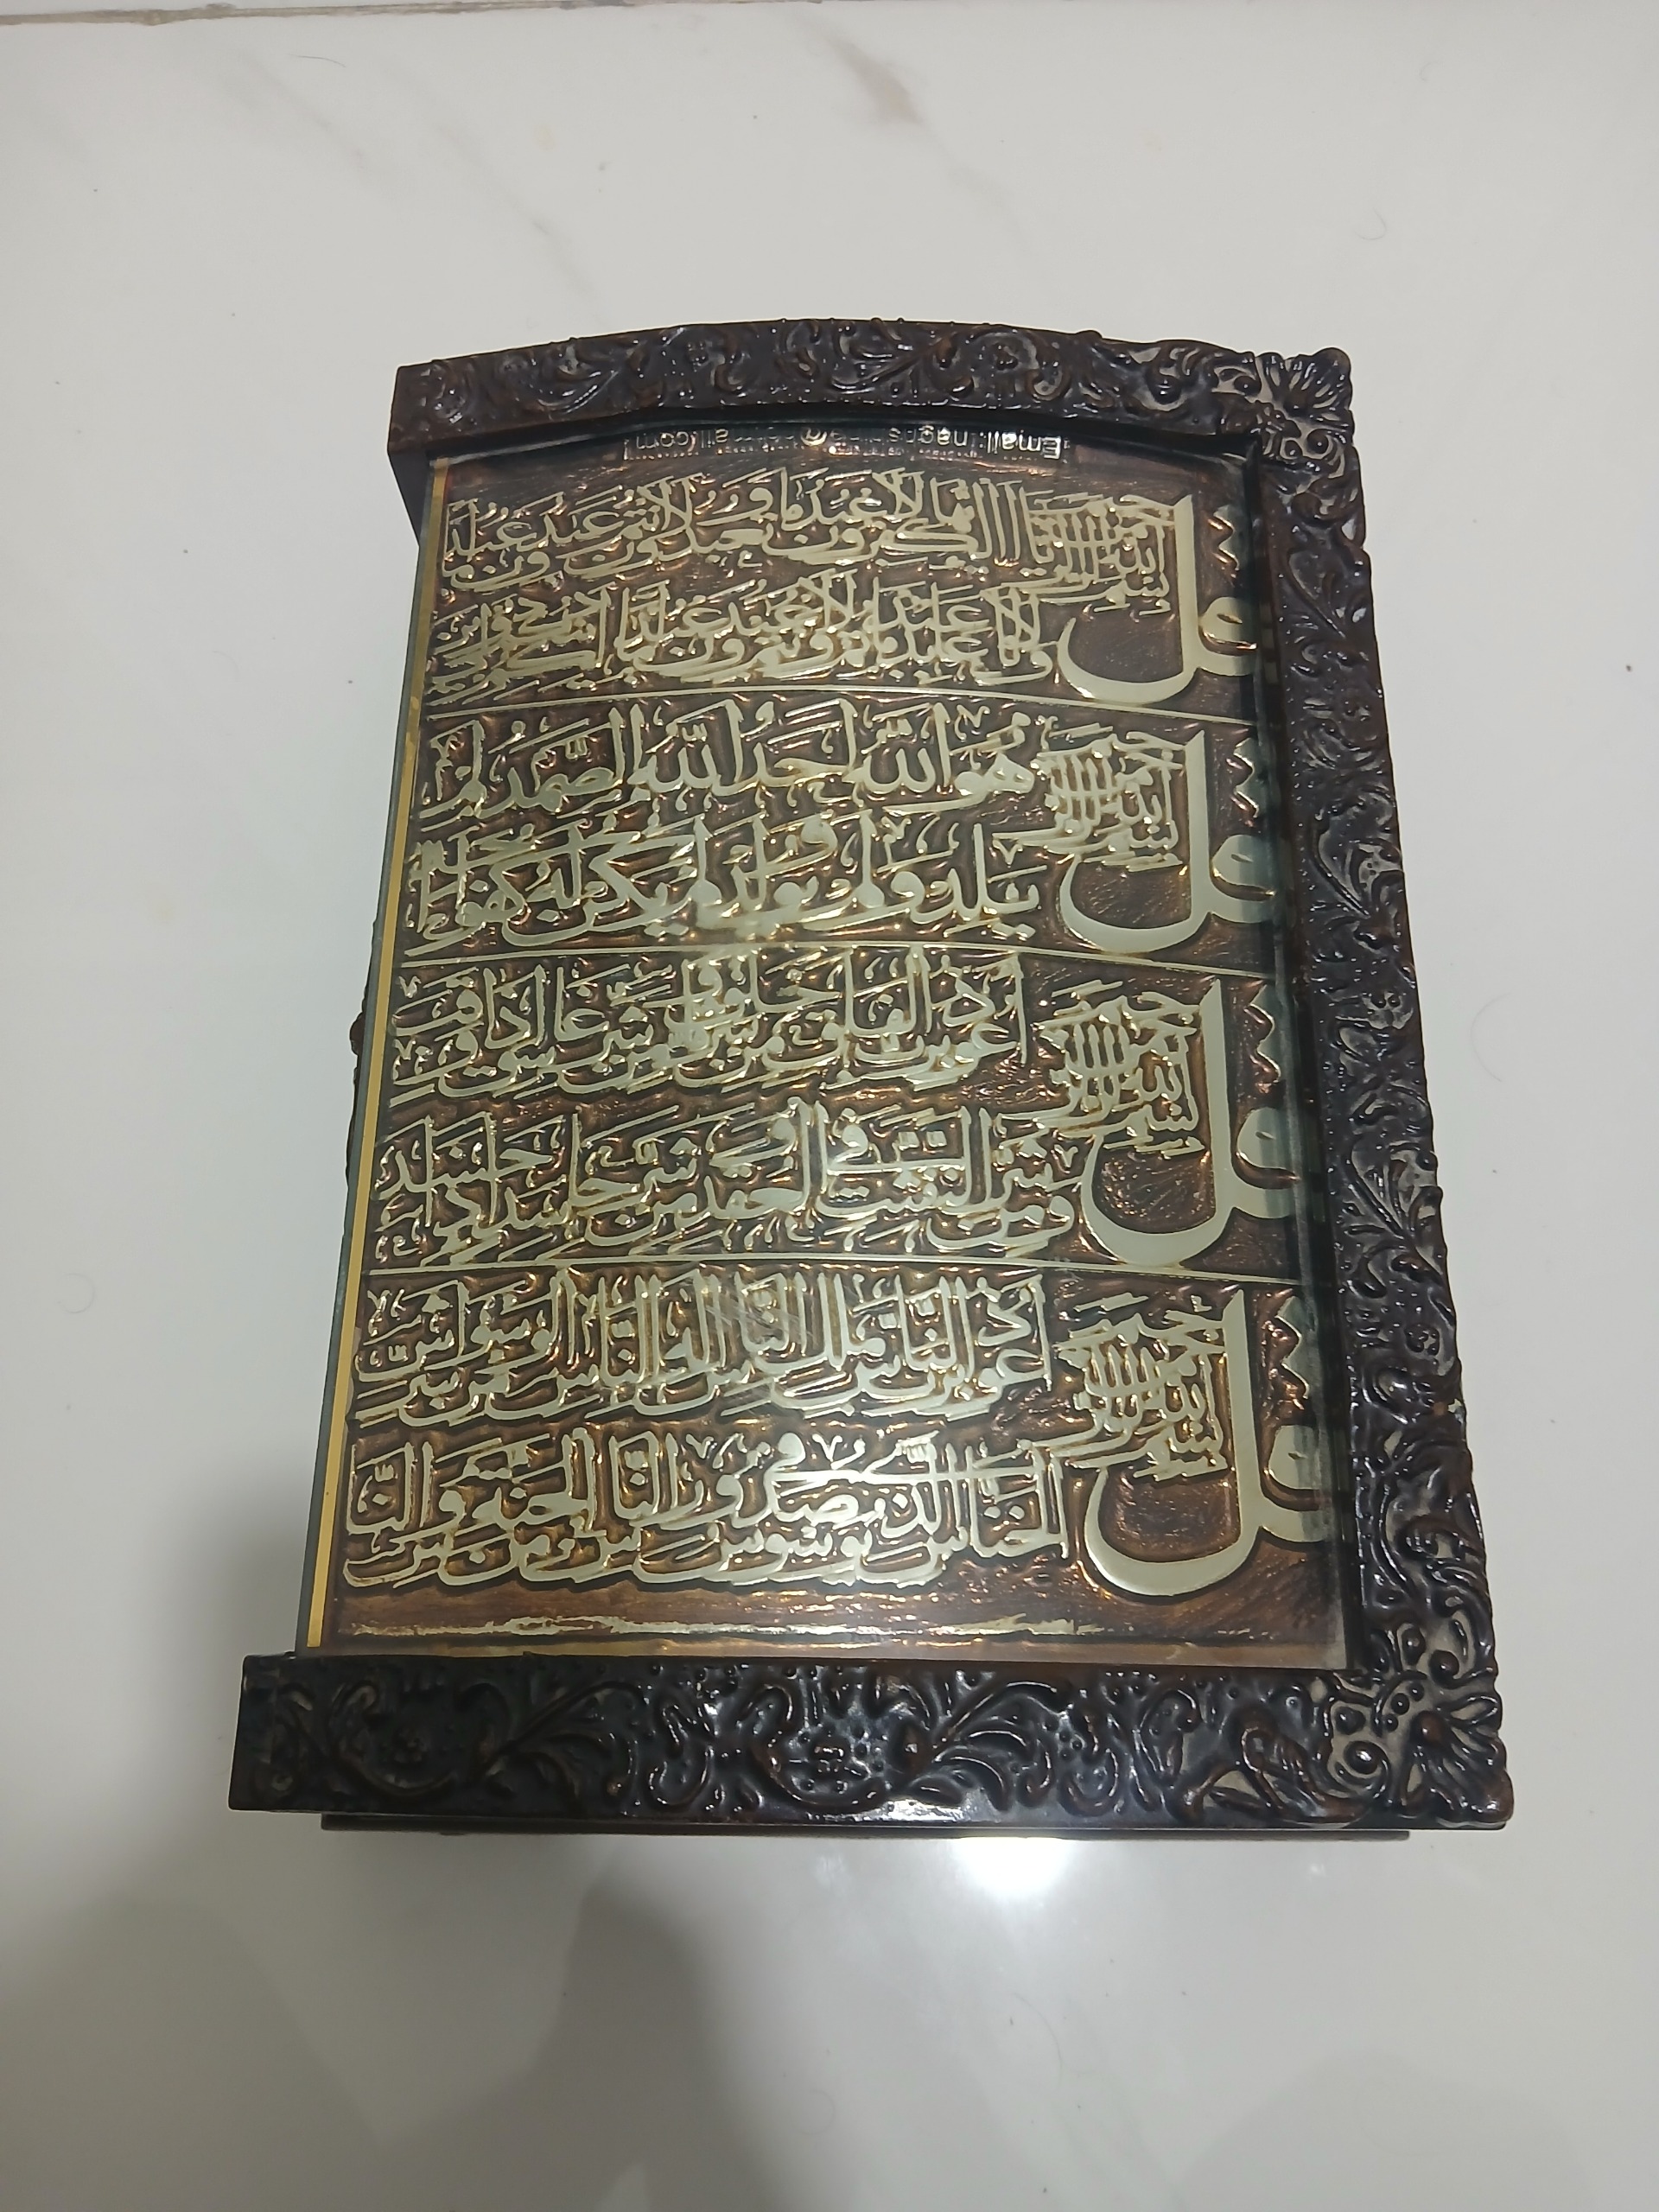 قل بسم الله الرحمن الرحيم يا ايها الكفرون لا اعبد ما تعبدون ولا انتم عبدون ما اعبد
ولا انا عابد ما عبدتم ولا انتم عبدون ما اعبد لكم دينكم ولي دين
قل بسم الله الرحمن الرحيم هُوَ اللّٰهُ اَحَدٌ اللّٰهُ الصَّمَدُ لَمْ
يَلِدْ وَلَمْ يُولَدْ وَلَمْ يَكُنْ لَهُ كُفُوًا اَحَدٌ
قل بسم الله الرحمن الرحيم اعوذ برب الفلق من شر ما خلق ومن شر غاسق اذا وقب
ومن شر النفثت في العقد ومن شر حاسد اذا حسد
قل بسم الله الرحمن الرحيم اعوذ برب الناس ملك الناس اله الناس من شر الوسواس
الخناس الذي يوسوس في صدور الناس من الجنة والناس